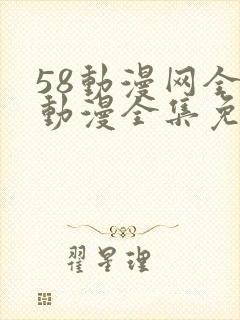 58動漫网全
動漫全集免
翟星理